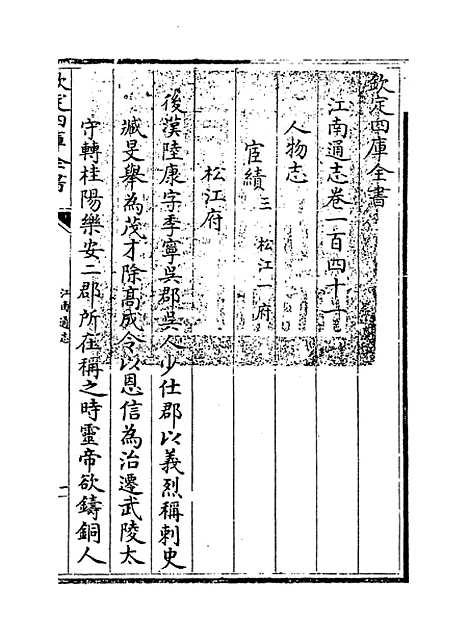 欽定四庫全書
江南通志卷一百四十一
人物志
宦績三 松江一府
松江府
後漢陸康字季寧吳郡吳人少仕郡以義烈稱刺史
臧旻舉為茂才除髙成令以恩信為治遷武陵太
守轉桂陽樂安二郡所在稱之時靈帝欲鑄銅人
欽定四庫全書
江南通志